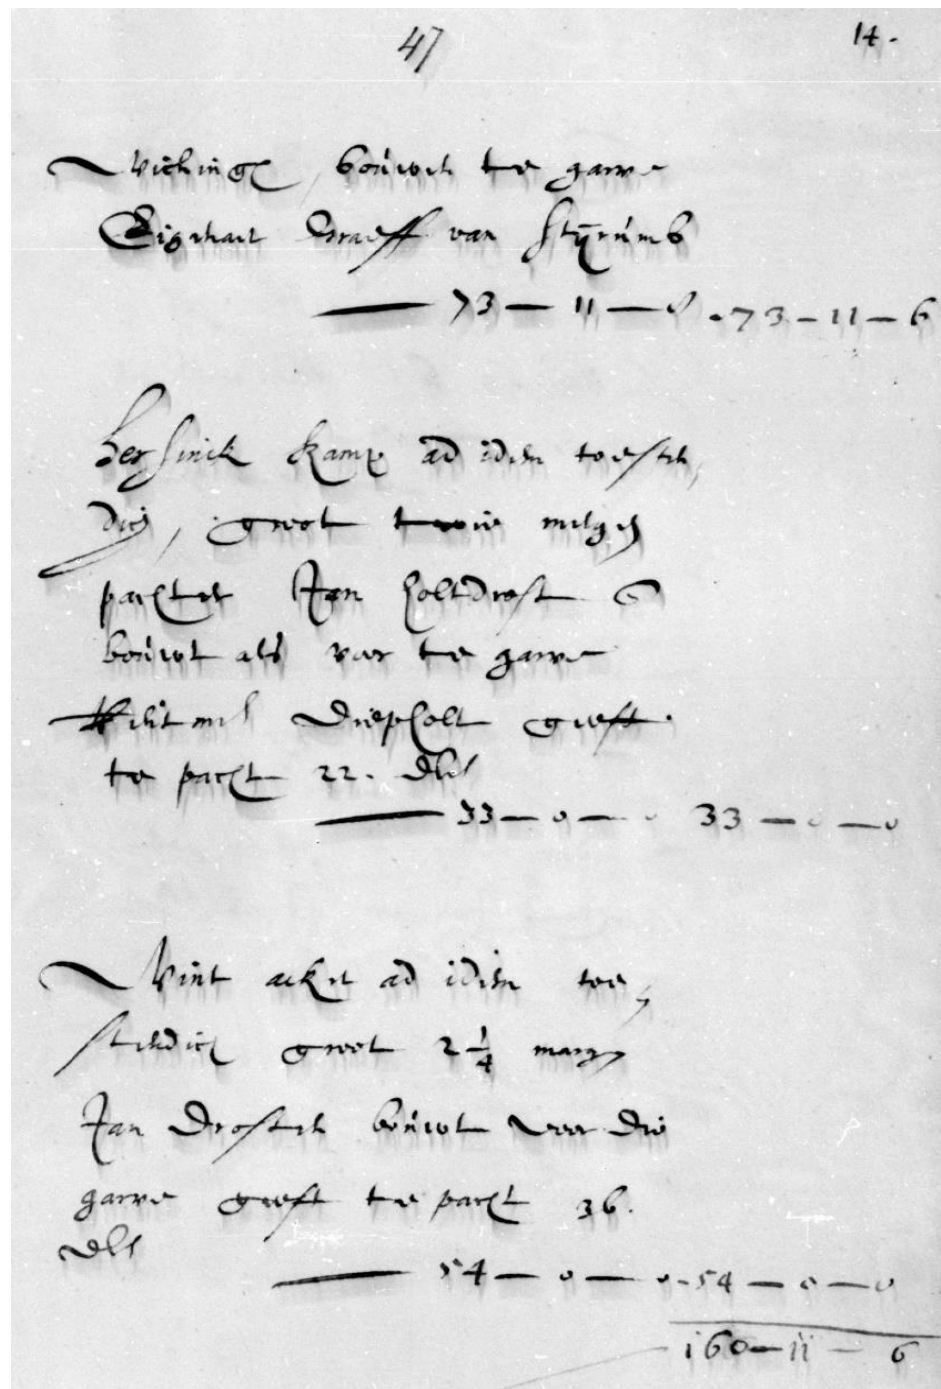 47 14.
Wichingh, bouwet te garve
Eigenhart Graeff van Stÿrumb
73 — 11 — 6 . 73 — 11 — 6
Hersinck Kamp ad idem toesten,
dich, groot twie mergen
pachter Jan Holtdrost
bouwt als voer te garve
Diepholt geeft
te pacht 22. dlr
33 — 0 — 0 33 — 0 — 0
Wint acker ad idem toe,
stendich groot 2 1/4 marg
Jan Drosten bouwt voer die
garve geeft te pacht 36.
dlr
54 — 0 — 0 - 54 — 0 — 0
160 — 11 — 6